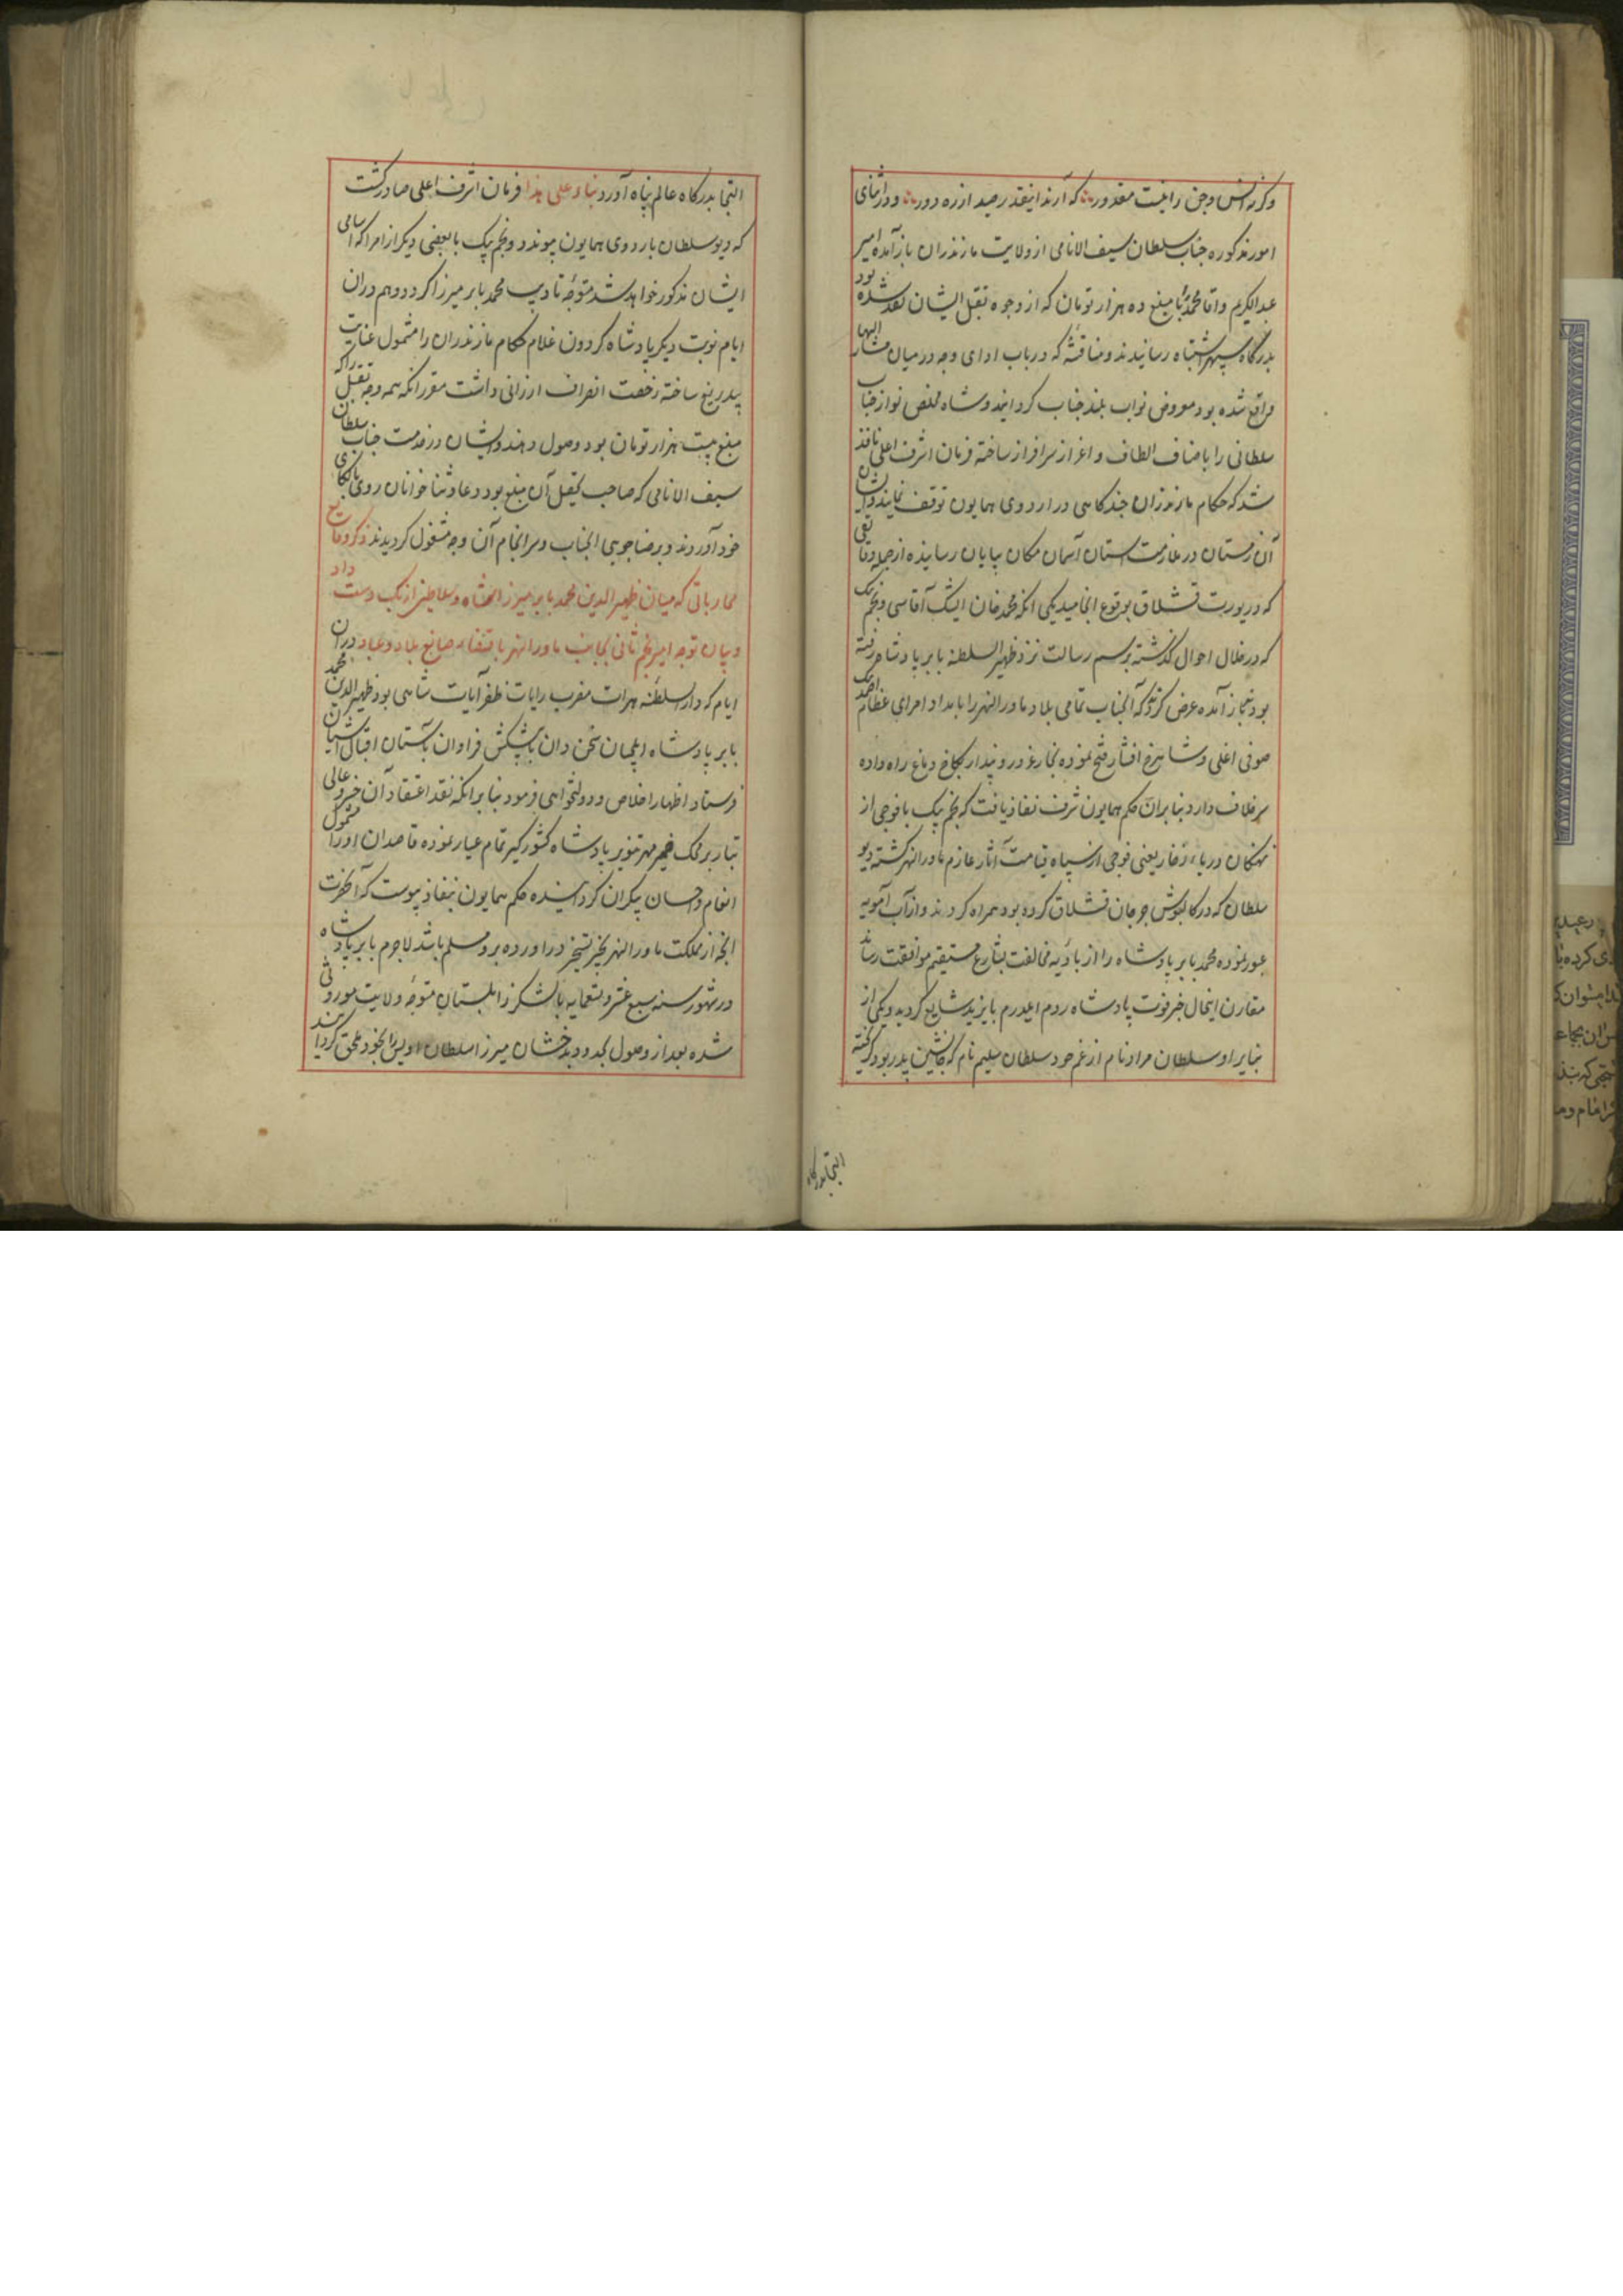 وکرنه انس وجن را نیست مقدور که آرند اینقدر صید از ره دور ودر اثنای
امور مذکوره جناب سلطان سیف الانامی از ولایت مازندران باز آمده امیر
عبدالکریم واقا محمد را با مبلغ ده هزار تومان که از وجوه تقبل ایشان نقد شده بود
بدرگاه سپهر اشتباه رسانیدند ومناقشهٔ که در باب ادای وجه در میان مشار الیهما
واقع شده بود معروض نواب بلند جناب کردانید وشاه مخلص نواز جناب
سلطانی را باضاف الطاف و اعزاز سرافراز ساخته فرمان اشرف اعلی نافذ
شد که حکام مازندران چندکاهی در اردوی همایون توقف نمایند وایشان
آن زمستان در ملازمت آستان آسمان مکان بپایان رسانیده از جمله وقایعی
که در یورت قشلاق بوقوع انجامید یکی انکه محمدخان ایشک آقاسی ونجم بیک
که در خلال احوال کذشته برسم رسالت نزد ظهیر السلطنه بابر پادشاه رفته
بودند باز آمده عرض کردند که آنجناب تمامی بلاد ماورالنهر را بامداد امرای عظام احمد بیک
صوفی اغلی وشاهرخ افشار فتح نموده بخار غرور وپندار بکاخ دماغ راه داده
سر خلاف دارد بنابران حکم همایون شرف نفاذ یافت که نجم بیک با فوجی از
نهنکان دریاء زخار یعنی فوجی از سپاه قیامت آثار عازم ماورالنهر کشته دیو
سلطان که در کالپوش جرجان قشلاق کرده بود همراه کردند واز آب آمویه
عبور نموده محمد بابر پادشاه را از بادیه مخالفت بشارع مستقیم موافقت رساند
مقارن اینحال خبر فوت پادشاه روم ایلدرم بایزید شایع کردید ویکی از
بنایر او سلطان مراد نام از عم خود سلطان سلیم نام که جانشین پدر بود کریخته
التجا بدرگاه
التجا بدرکاه عالم پناه آورد بناء علی هذا فرمان اشرف اعلی صادر کشت
که دیو سلطان باردوی همایون پیوندد ونجم بیک با بعضی دیکر از امرا که اسامی
ایشان مذکور خواهد شد متوجه تادیب محمد بابر میرزا کردد وهم دران
ایام نوبت دیکر پادشاه کردون غلام حکام مازندران را مشمول عنایت
بیدریغ ساخته رخصت انصراف ارزانی داشت مقرر انکه تتمه وجه تقبل را که
مبلغ بیست هزار تومان بود وصول دهند وایشان در خدمت جناب سلطان
سیف الانامی که صاحب تحصیل آن مبلغ بود دعا وثنا خوانان روی بالکای
خود آوردند وبرضا جویی آنجناب وسرانجام آن وجه مشغول کردیدند ذکر وقایع
محارباتی که میان ظهیرالدین محمد بابر میرزا پادشاه وسلاطین ازبک دست داد
وبیان توجه امیر نجم ثانی بجانب ماورالنهر باقتضاء صانع بلاد وعباد دران
ایام که دارالسلطنه هرات مضرب رایات ظفر آیات شاهی بود ظهیرالدین محمد
بابر پادشاه ایلچیان سخن دان با پیشکش فراوان بآستان اقبال آشیان
فرستاد اظهار اخلاص ودولتخواهی فرمود بنابرانکه نقد اعتقاد آن خسرو عالی
تبار بر محک ضمیر مهر تنویر پادشاه کشورکیر تمام عیار نموده قاصدان او را مشمول
انعام واحسان بیکران کردانیده حکم همایون بنفاذ پیوست که آنحضرت
آنچه از مملکت ماورالنهر بحیز تسخیر در اورده برو مسلم باشد لاجرم بابر پادشاه
در شهور سنه سبع عشر وتسعمایه با لشکر زابلستان متوجه ولایت موروثی
شده بعد از وصول بحدود بدخشان میرزا سلطان اویس را بخود ملحق کردانید